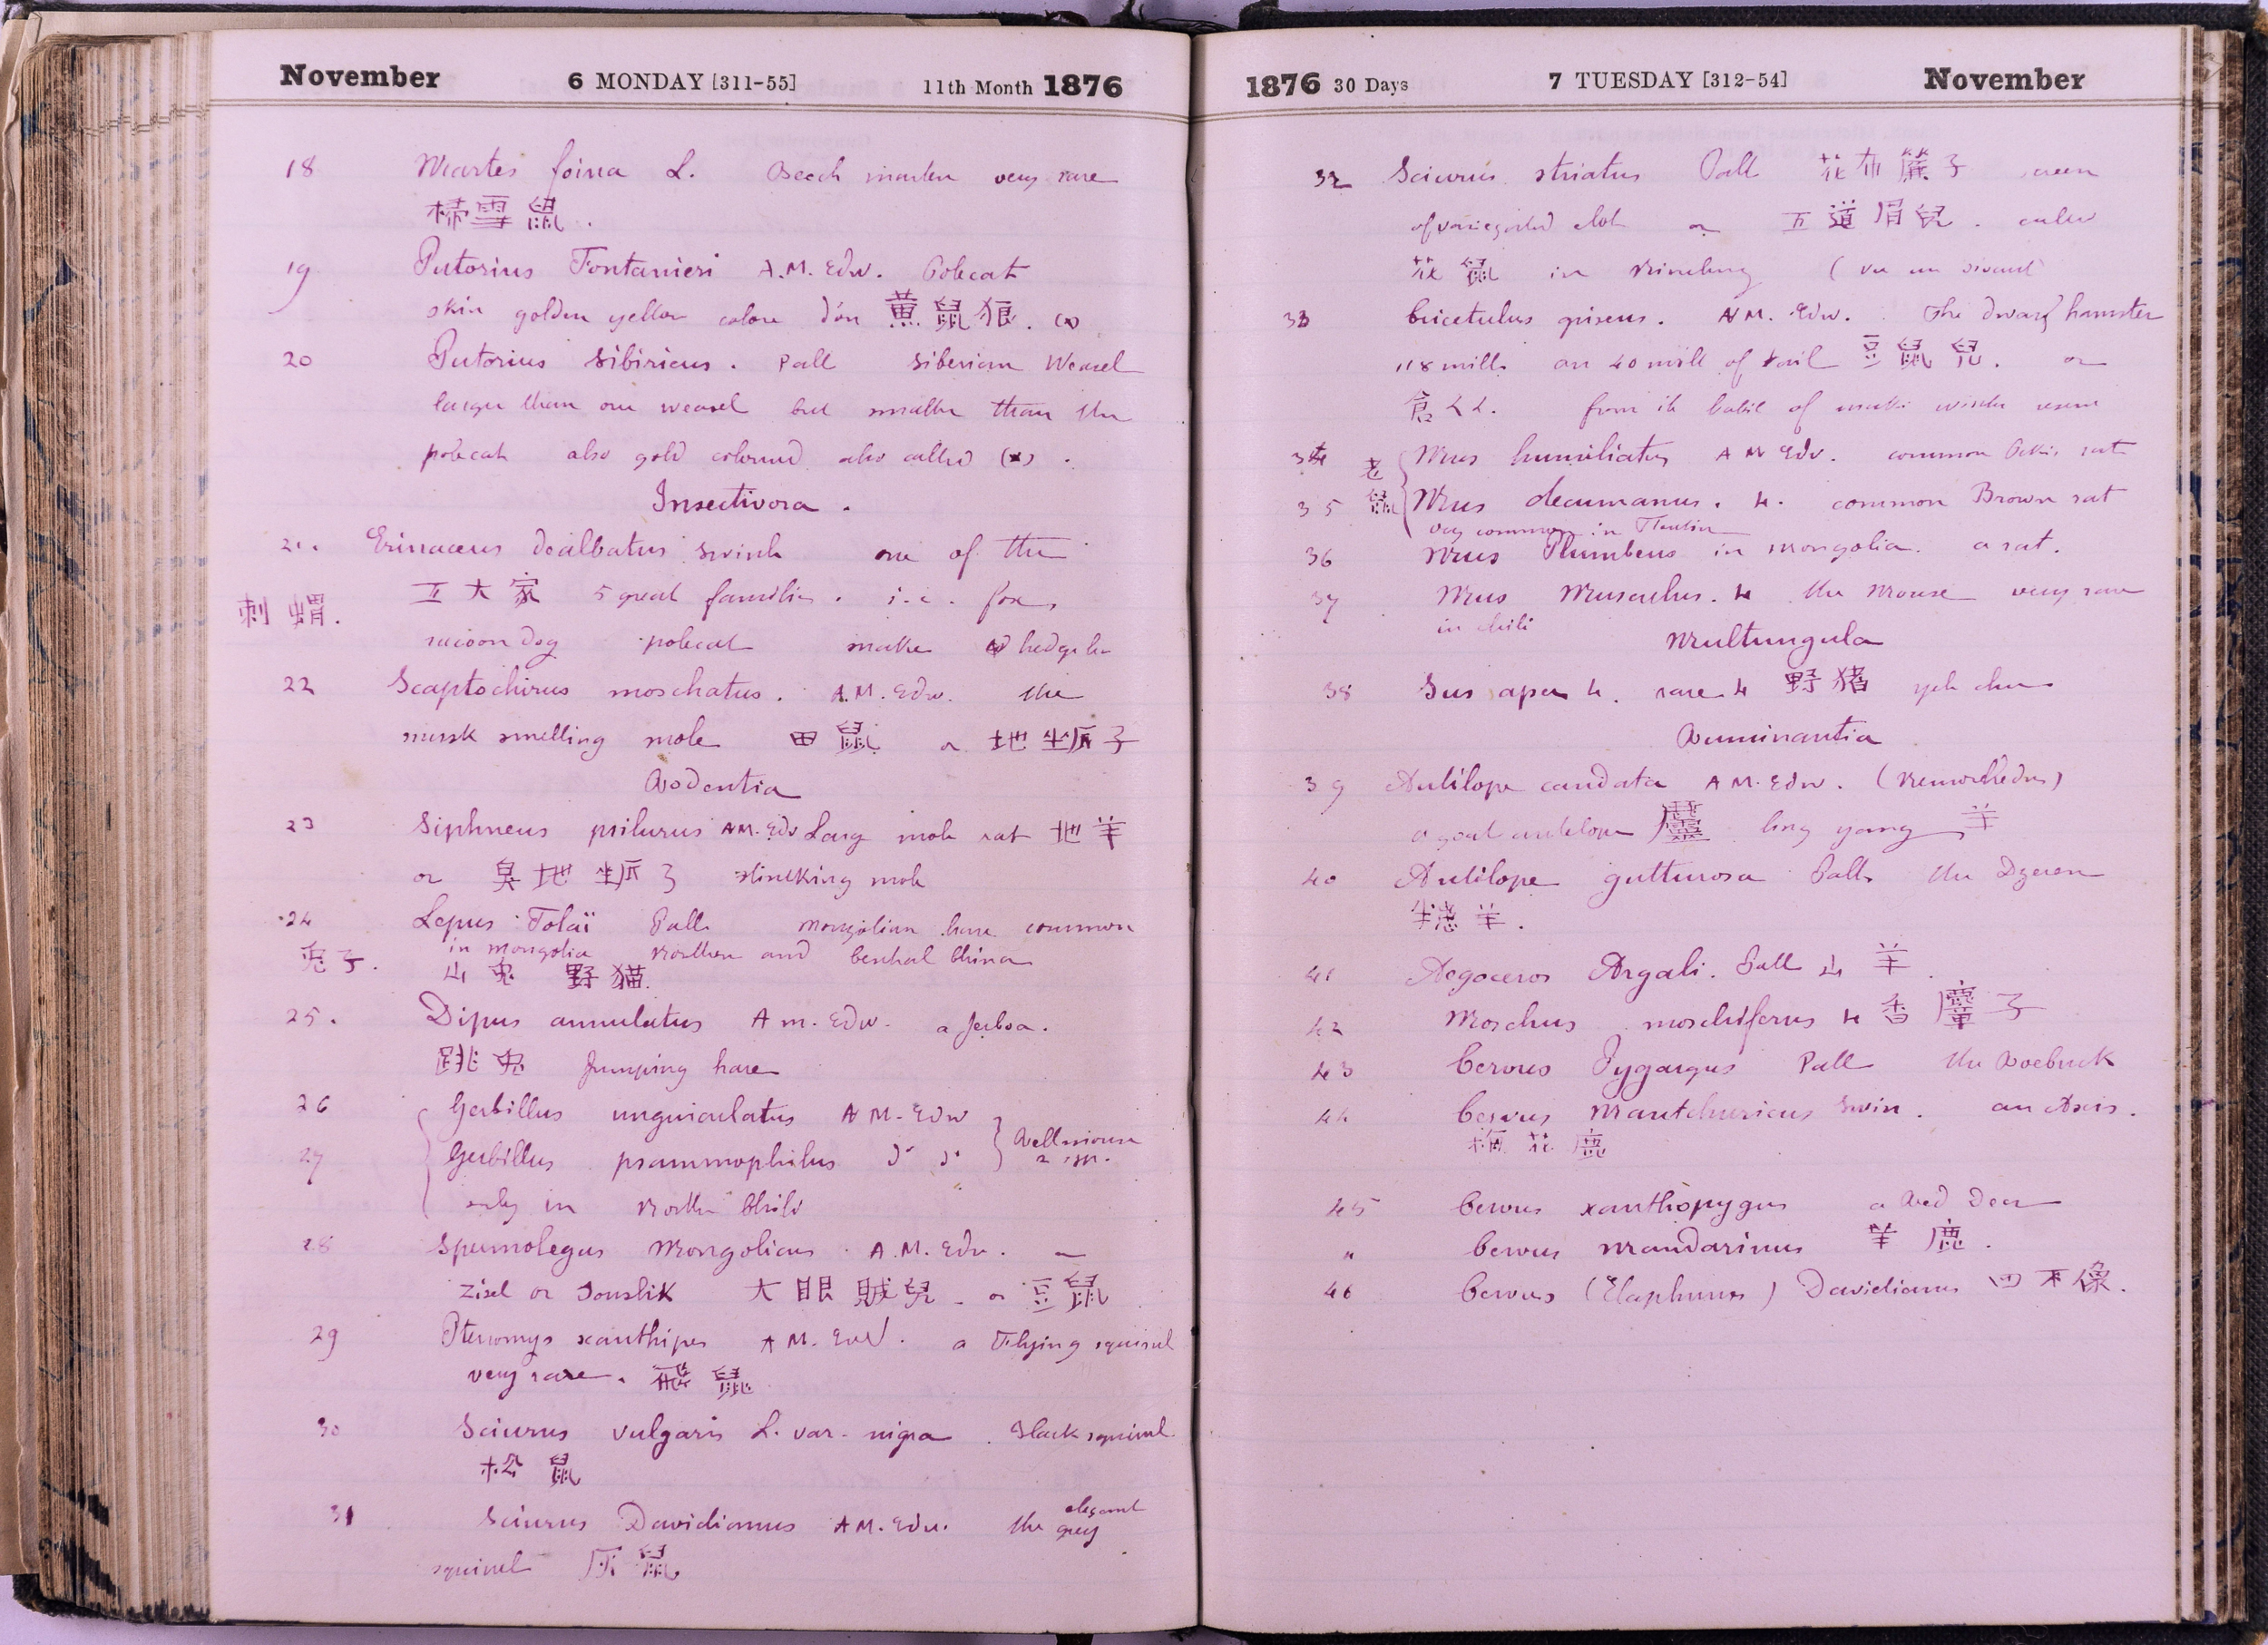 November 6 MONDAY [311-55] 11th Month 1876
18 Martes foina L. Beech marten very rare
掃雪鼠.
19 Putorius Fontanieri A.M. Edw. Polecat
skin golden yellow colour 黄鼠狼. (x)
20 Putorius Sibiricus. Pall Siberian Weasel
larger than our weasel but smaller than the
polecat also gold coloured also called (x).
Insectivora.
21. Erinaceus dealbatus Swinh one of the
五大家 5 great families. i.e. fox,
刺蝟.
racoon dog polecat snake hedgeho
22 Scaptochirus moschatus. A.M. Edw. the
musk smelling mole 田鼠 or 地坐子
Rodentia
23 Siphneus psilurus A.M. Edw Large mole rat 地羊
or 臭地子 stinking mole
24 Lepus Tolaï Pall. Mongolian hare common
in Mongolia Northern and Central China
兎子. 山兎 野猫.
25. Dipus annulatus A m. Edw. a Jerboa.
跳兎 Jumping hare
26 Gerbillus unguiculatus A M. Edw
27 Gerbillus psammophilus do do } Rellmouse 2 sp.
only in North Chili
28 Spermolegus Mongolicus A.M. Edw. —
Zisel or Souslik 大眼賊兒 - or 豆鼠
29 Pteromys xanthipes A M. Edw. a Flying squirrel
very rare. 飛鼠
30 Sciurus vulgaris L. var. nigra. Black squirrel
松鼠
31 Sciurus Davidianus A M. Edw. the elegant grey
squirrel 鼠
1876 30 Days 7 TUESDAY [312-54] November
32 Sciurus striatus Pall 花布簾子 screen
of variegated clot or 五道眉兒. called
花鼠 in
33 Cricetulus griseus. A M. Edw. The dwarf hamster
118 mill. an 40 mill of tail 豆鼠兒. or
倉 from its habit of
34 Mus humiliatus A M Edw. common Pekin rat
老鼠
35 Mus decumanus. L. common Brown rat
very common in Tientsin
36 Mus Plumbeus in Mongolia. a rat.
37 Mus Musculus. L the Mouse very rare
in chili
Multungula
38 Sus aper L. rare L 野猪 yeh chu
Ruminantia
39 Antilope caudata A M. Edw. (Nemorhedus)
a goat antelope 麢 ling yang 羊
40 Antilope gutturosa Pall. the Dzeren
羊.
41 Aegoceros Argali. Pall 山羊.
42 Moschus moschiferus L 香麞子
43 Cervus Pygargus Pall the Roebuck
44 Cervus Mantchuricus Swin. an Axis.
梅花鹿
45 Cervus xanthopygus a Red Deer
" Cervus Mandarinus 羊鹿.
46 Cervus (Elaphurus) Davidianus 四不像.